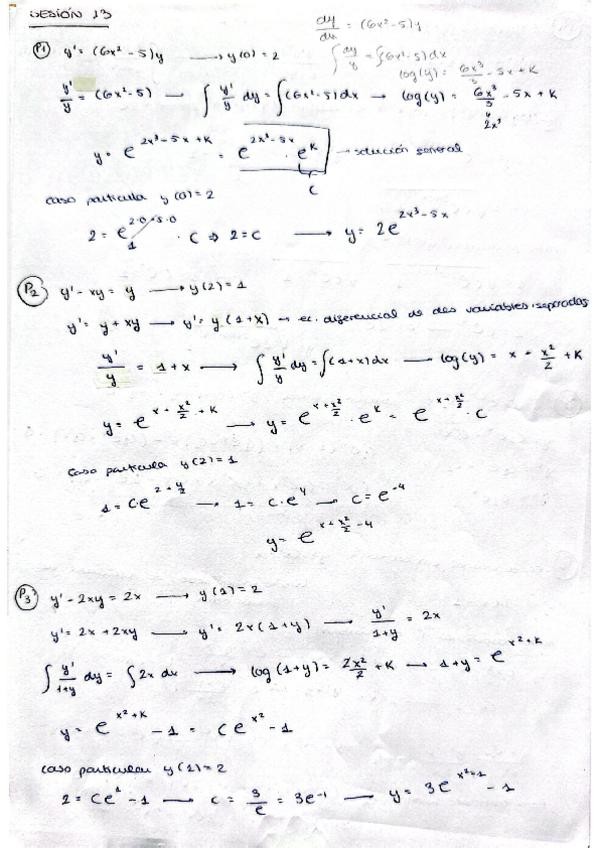 SESIÓN 13
dy/dx = (6x²-5)y
P1 y' = (6x²-5)y → y(0)=2
∫ dy/y = ∫(6x²-5)dx
log(y) = 6x³/3 - 5x + K
y'/y = (6x²-5) → ∫ y'/y dy = ∫(6x²-5)dx → log(y) = 6x³/3 - 5x + K
2x³
y = e^(2x³-5x+K) = e^(2x³-5x) · e^K → solución general
C
caso particular y(0)=2
2 = e^(2·0-5·0) · C ⇒ 2=C → y = 2e^(2x³-5x)
1
P2 y' - xy = y → y(2)=1
y' = y + xy → y' = y(1+x) → ec. diferencial de dos variables separadas
y'/y = 1+x → ∫ y'/y dy = ∫(1+x)dx → log(y) = x + x²/2 + K
y = e^(x + x²/2 + K) → y = e^(x + x²/2) · e^K = e^(x + x²/2) · C
caso particular y(2)=1
1 = C·e^(2 + 4/2) → 1 = C·e^4 → C = e^-4
y = e^(x + x²/2 - 4)
P3 y' - 2xy = 2x → y(1)=2
y' = 2x + 2xy → y' = 2x(1+y) → y'/(1+y) = 2x
∫ y'/(1+y) dy = ∫2x dx → log(1+y) = 2x²/2 + K → 1+y = e^(x²+K)
y = e^(x²+K) - 1 = Ce^(x²) - 1
caso particular y(1)=2
2 = Ce^1 - 1 → C = 3/e = 3e^-1 → y = 3e^(x²-1) - 1